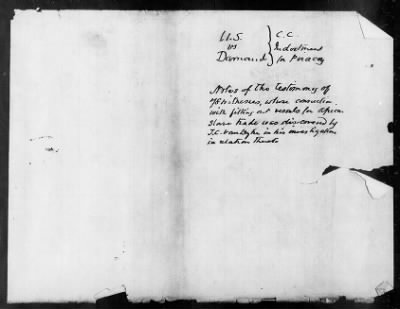 U.S. C.C.
vs Indictment
Damaud for Piracy
Notes of the testimony of
witnesses, whose connection
with fitting out vessels for African
Slave trade was discovered by
T.C. Van Dyke in his investigation
in relation thereto